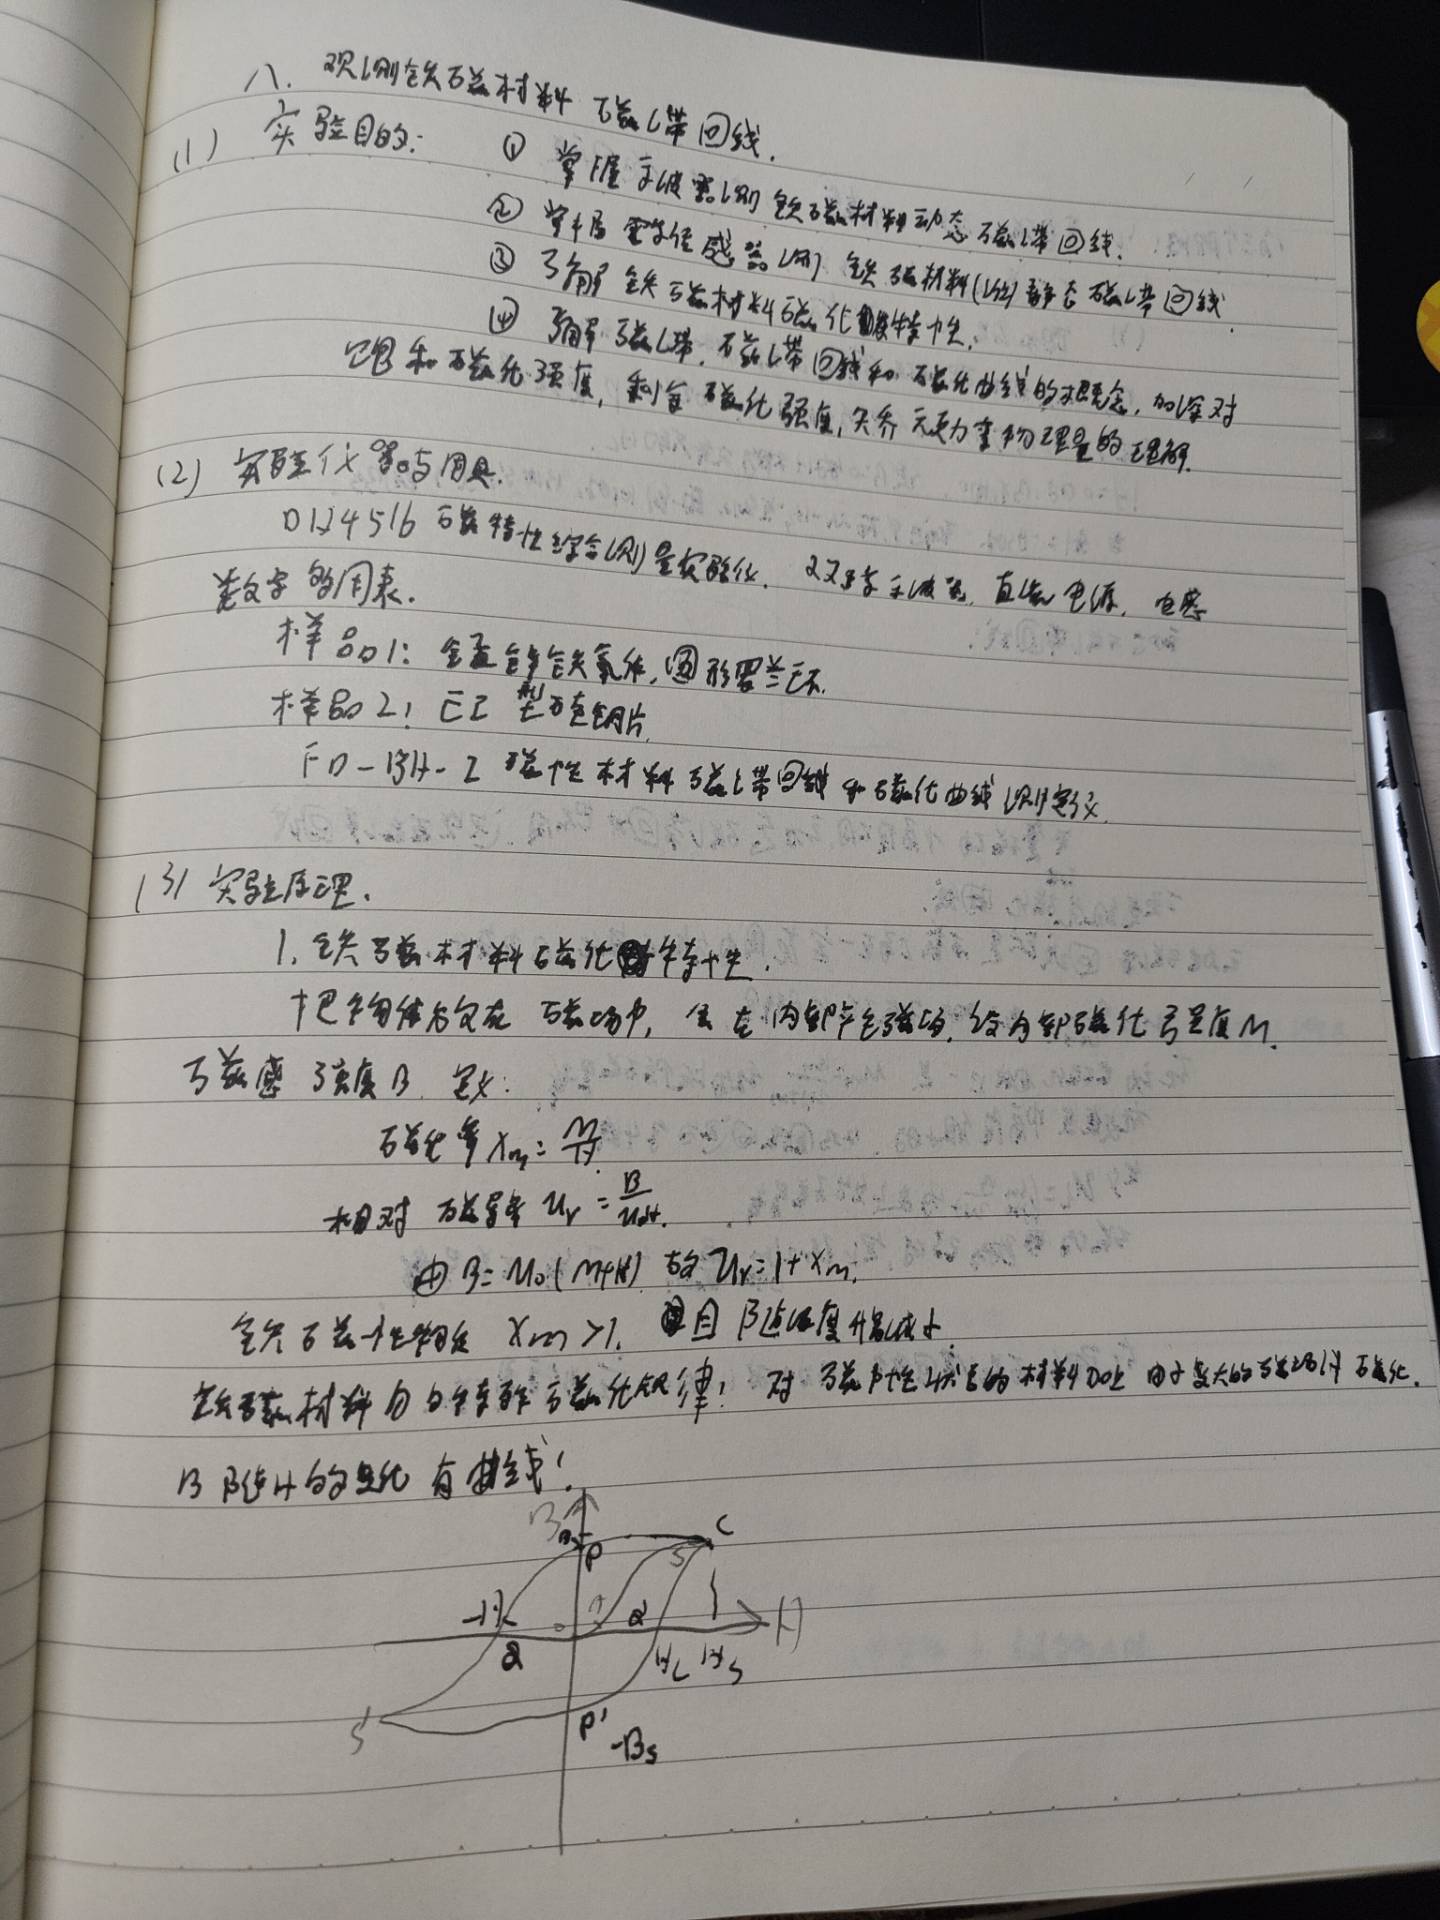 八. 观测铁磁材料磁滞回线.
(1) 实验目的: ① 掌握示波器测铁磁材料动态磁滞回线.
② 掌握霍尔传感器测铁磁材料(准)静态磁滞回线.
③ 了解铁磁材料磁化特性.
④ 了解磁滞, 磁滞回线和磁化曲线的概念, 加深对
饱和磁化强度, 剩余磁化强度, 矫顽力等物理量的理解.
(2) 实验仪器与用具.
DH4516 磁特性综合测量实验仪. 双踪示波器, 直流电源, 电感
数字多用表.
样品1: 锰锌铁氧体, 圆形罗兰环.
样品2: EI 型硅钢片.
FD-BH-I 磁性材料磁滞回线和磁化曲线测定仪.
(3) 实验原理.
1. 铁磁材料磁化特性.
把物体放在磁场中, 会在内部产生磁场. 设内部磁化强度M.
磁感强度B. 定义:
磁化率 Xm = M/H.
相对磁导率 ur = B/u0H.
由 B = u0(M+H) 故 ur = 1 + Xm.
铁磁性物质 Xm >1. 且 随温度升高减小
铁磁材料的特殊磁化规律: 对磁中性状态的材料加上由小变大的磁场H磁化.
B随H的变化有曲线:
B
P C
S
-Hc O A Q' H
Q Hc Hs
S' P'
-Bs